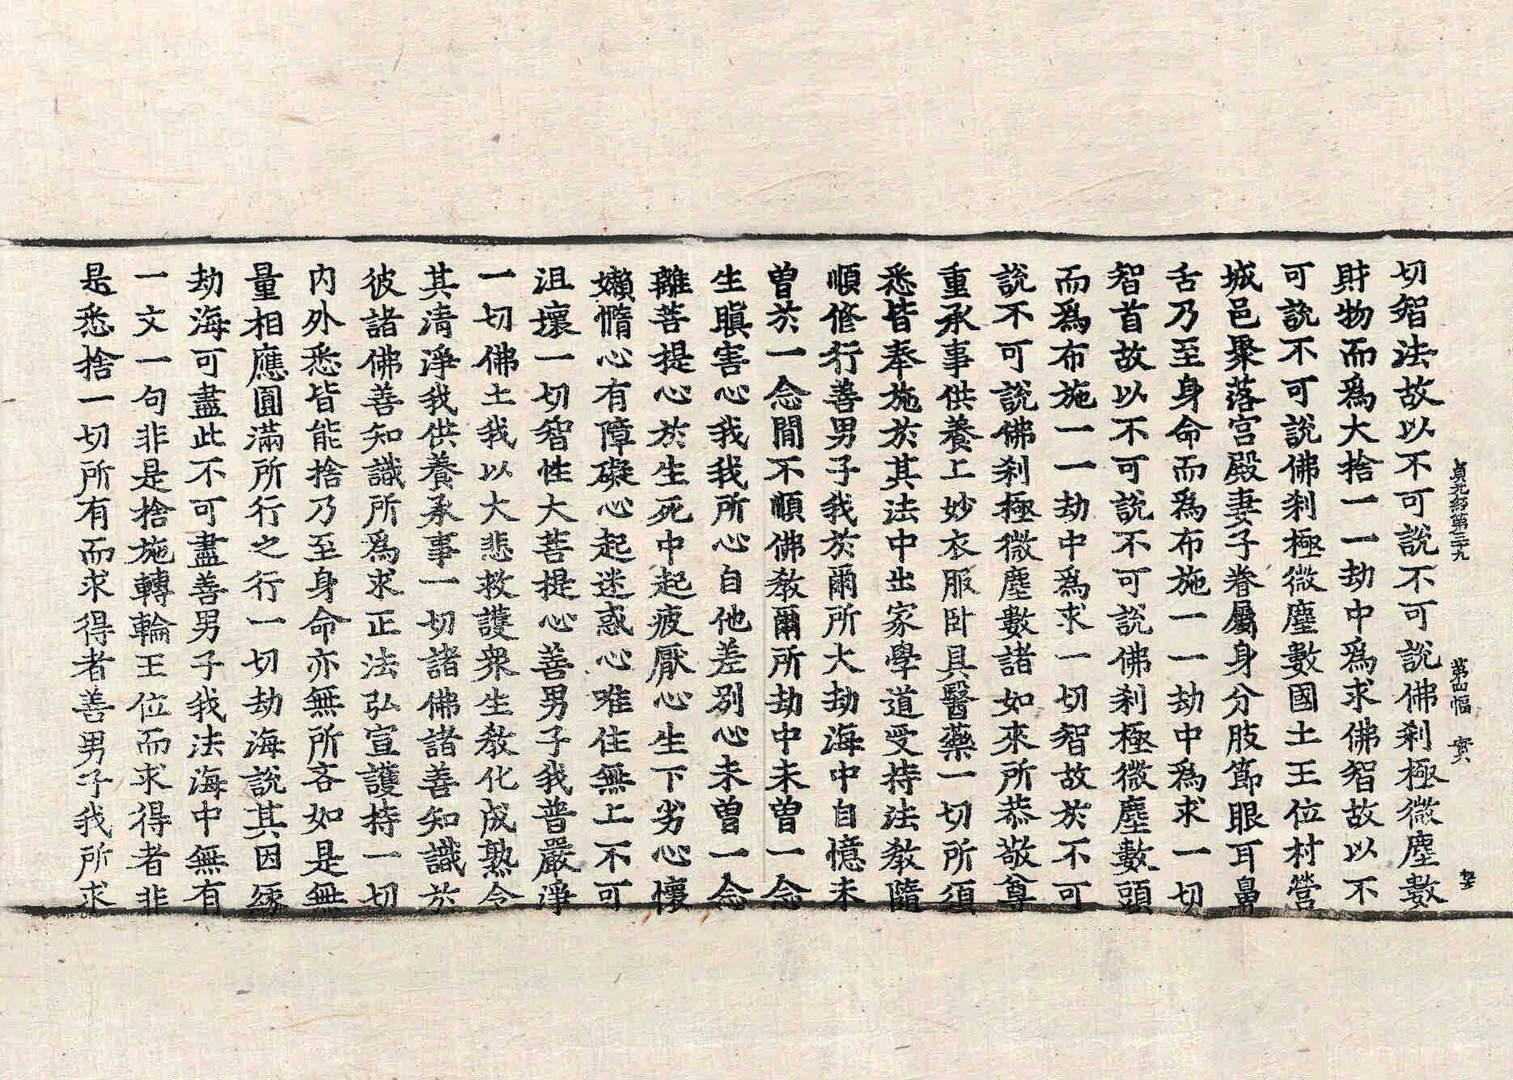 貞元經第三十九 第四幅 實
切智法故以不可說不可說佛剎極微塵數
財物而爲大捨一一劫中爲求佛智故以不
可說不可說佛剎極微塵數國土王位村營
城邑聚落宮殿妻子眷屬身分肢節眼耳鼻
舌乃至身命而爲布施一一劫中爲求一切
智首故以不可說不可說佛剎極微塵數頭
而爲布施一一劫中爲求一切智故於不可
說不可說佛剎極微塵數諸如來所恭敬尊
重承事供養上妙衣服臥具醫藥一切所須
悉皆奉施於其法中出家學道受持法教隨
順修行善男子我於爾所大劫海中自憶未
曾於一念閒不順佛教爾所劫中未曾一念
生瞋害心我我所心自他差別心未曾一念
離菩提心於生死中起疲厭心生下劣心懷
嬾惰心有障礙心起迷惑心唯住無上不可
沮壞一切智性大菩提心善男子我普嚴淨
一切佛土我以大悲救護衆生教化成熟令
其清淨我供養承事一切諸佛諸善知識於
彼諸佛善知識所爲求正法弘宣護持一切
內外悉皆能捨乃至身命亦無所吝如是無
量相應圓滿所行之行一切劫海說其因緣
劫海可盡此不可盡善男子我法海中無有
一文一句非是捨施轉輪王位而求得者非
是悉捨一切所有而求得者善男子我所求